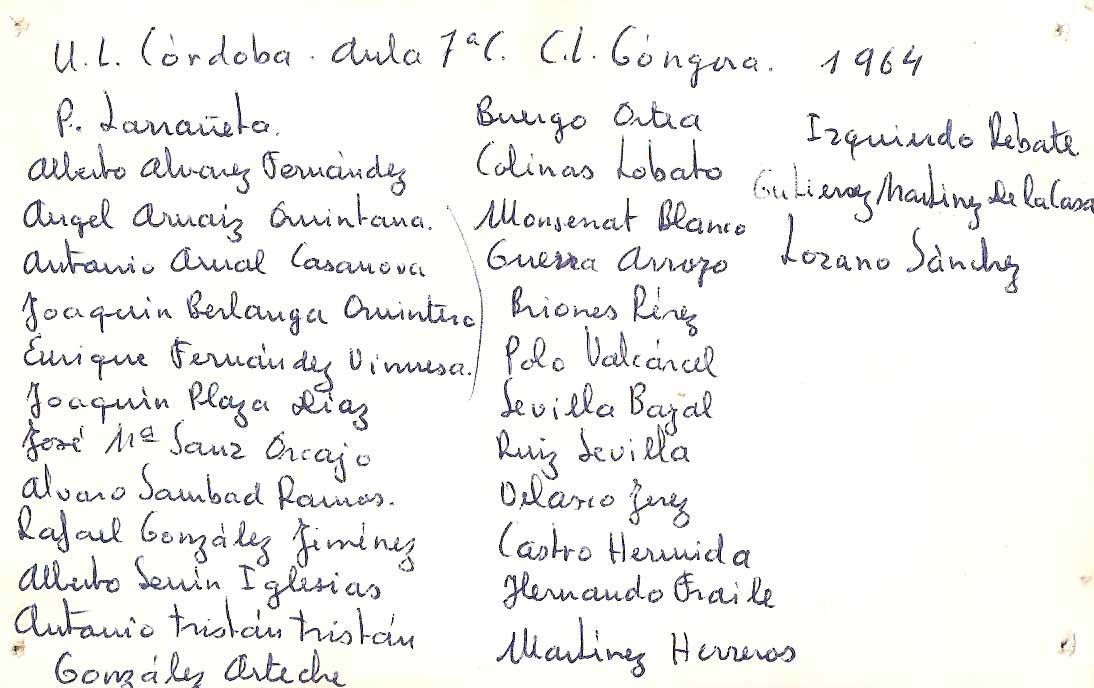 U.L. Córdoba. Aula 7ªC. C.L. Góngora. 1964
P. Larrañeta.
Alberto Alvarez Fernández
Angel Arnaiz Quintana.
Antonio Arnal Casanova
Joaquin Berlanga Quintero
Enrique Fernández Vinuesa.
Joaquin Plaza Diaz
José Mª Sanz Orcajo
Alvaro Sambad Ramos.
Rafael González Jiménez
Alberto Senin Iglesias
Antonio tristán tristán
González Arteche
Buergo Ortea
Colinas Lobato
Monsenat Blanco
Guerra Arroyo
Briones Pérez
Polo Valcárcel
Sevilla Bazal
Ruiz Sevilla
Velasco Jerez
Castro Hermida
Hernando Fraile
Martinez Herreros
Izquierdo Rebate
Gutierrez Martinez De la Casa
Lozano Sánchez